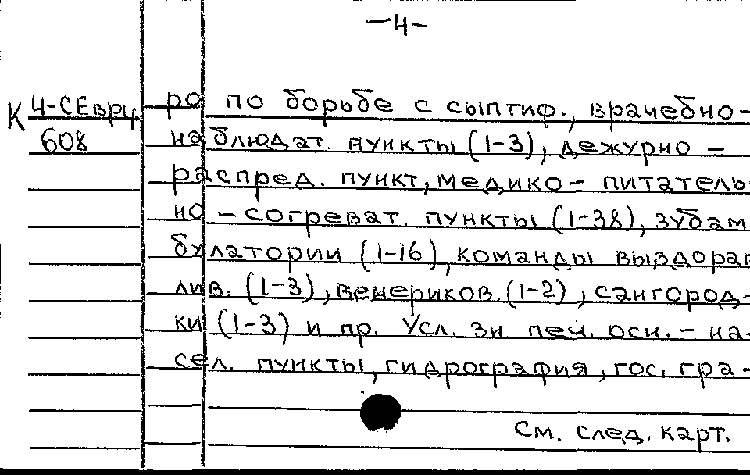 -4-
К 4-СЕврц ро по борьбе с сыптиф., врачебно-
608 наблюдат. пункты (1-3), дежурно -
распред. пункт, медико - питатель
но - согреват. пункты (1-38), зубам
булатории (1-16), команды выздорав
лив. (1-3), венериков. (1-2), сангород-
ки (1-3) и пр. Усл. зн печ. осн. - на-
сел. пункты, гидрография, гос. гра-
См. след. карт.